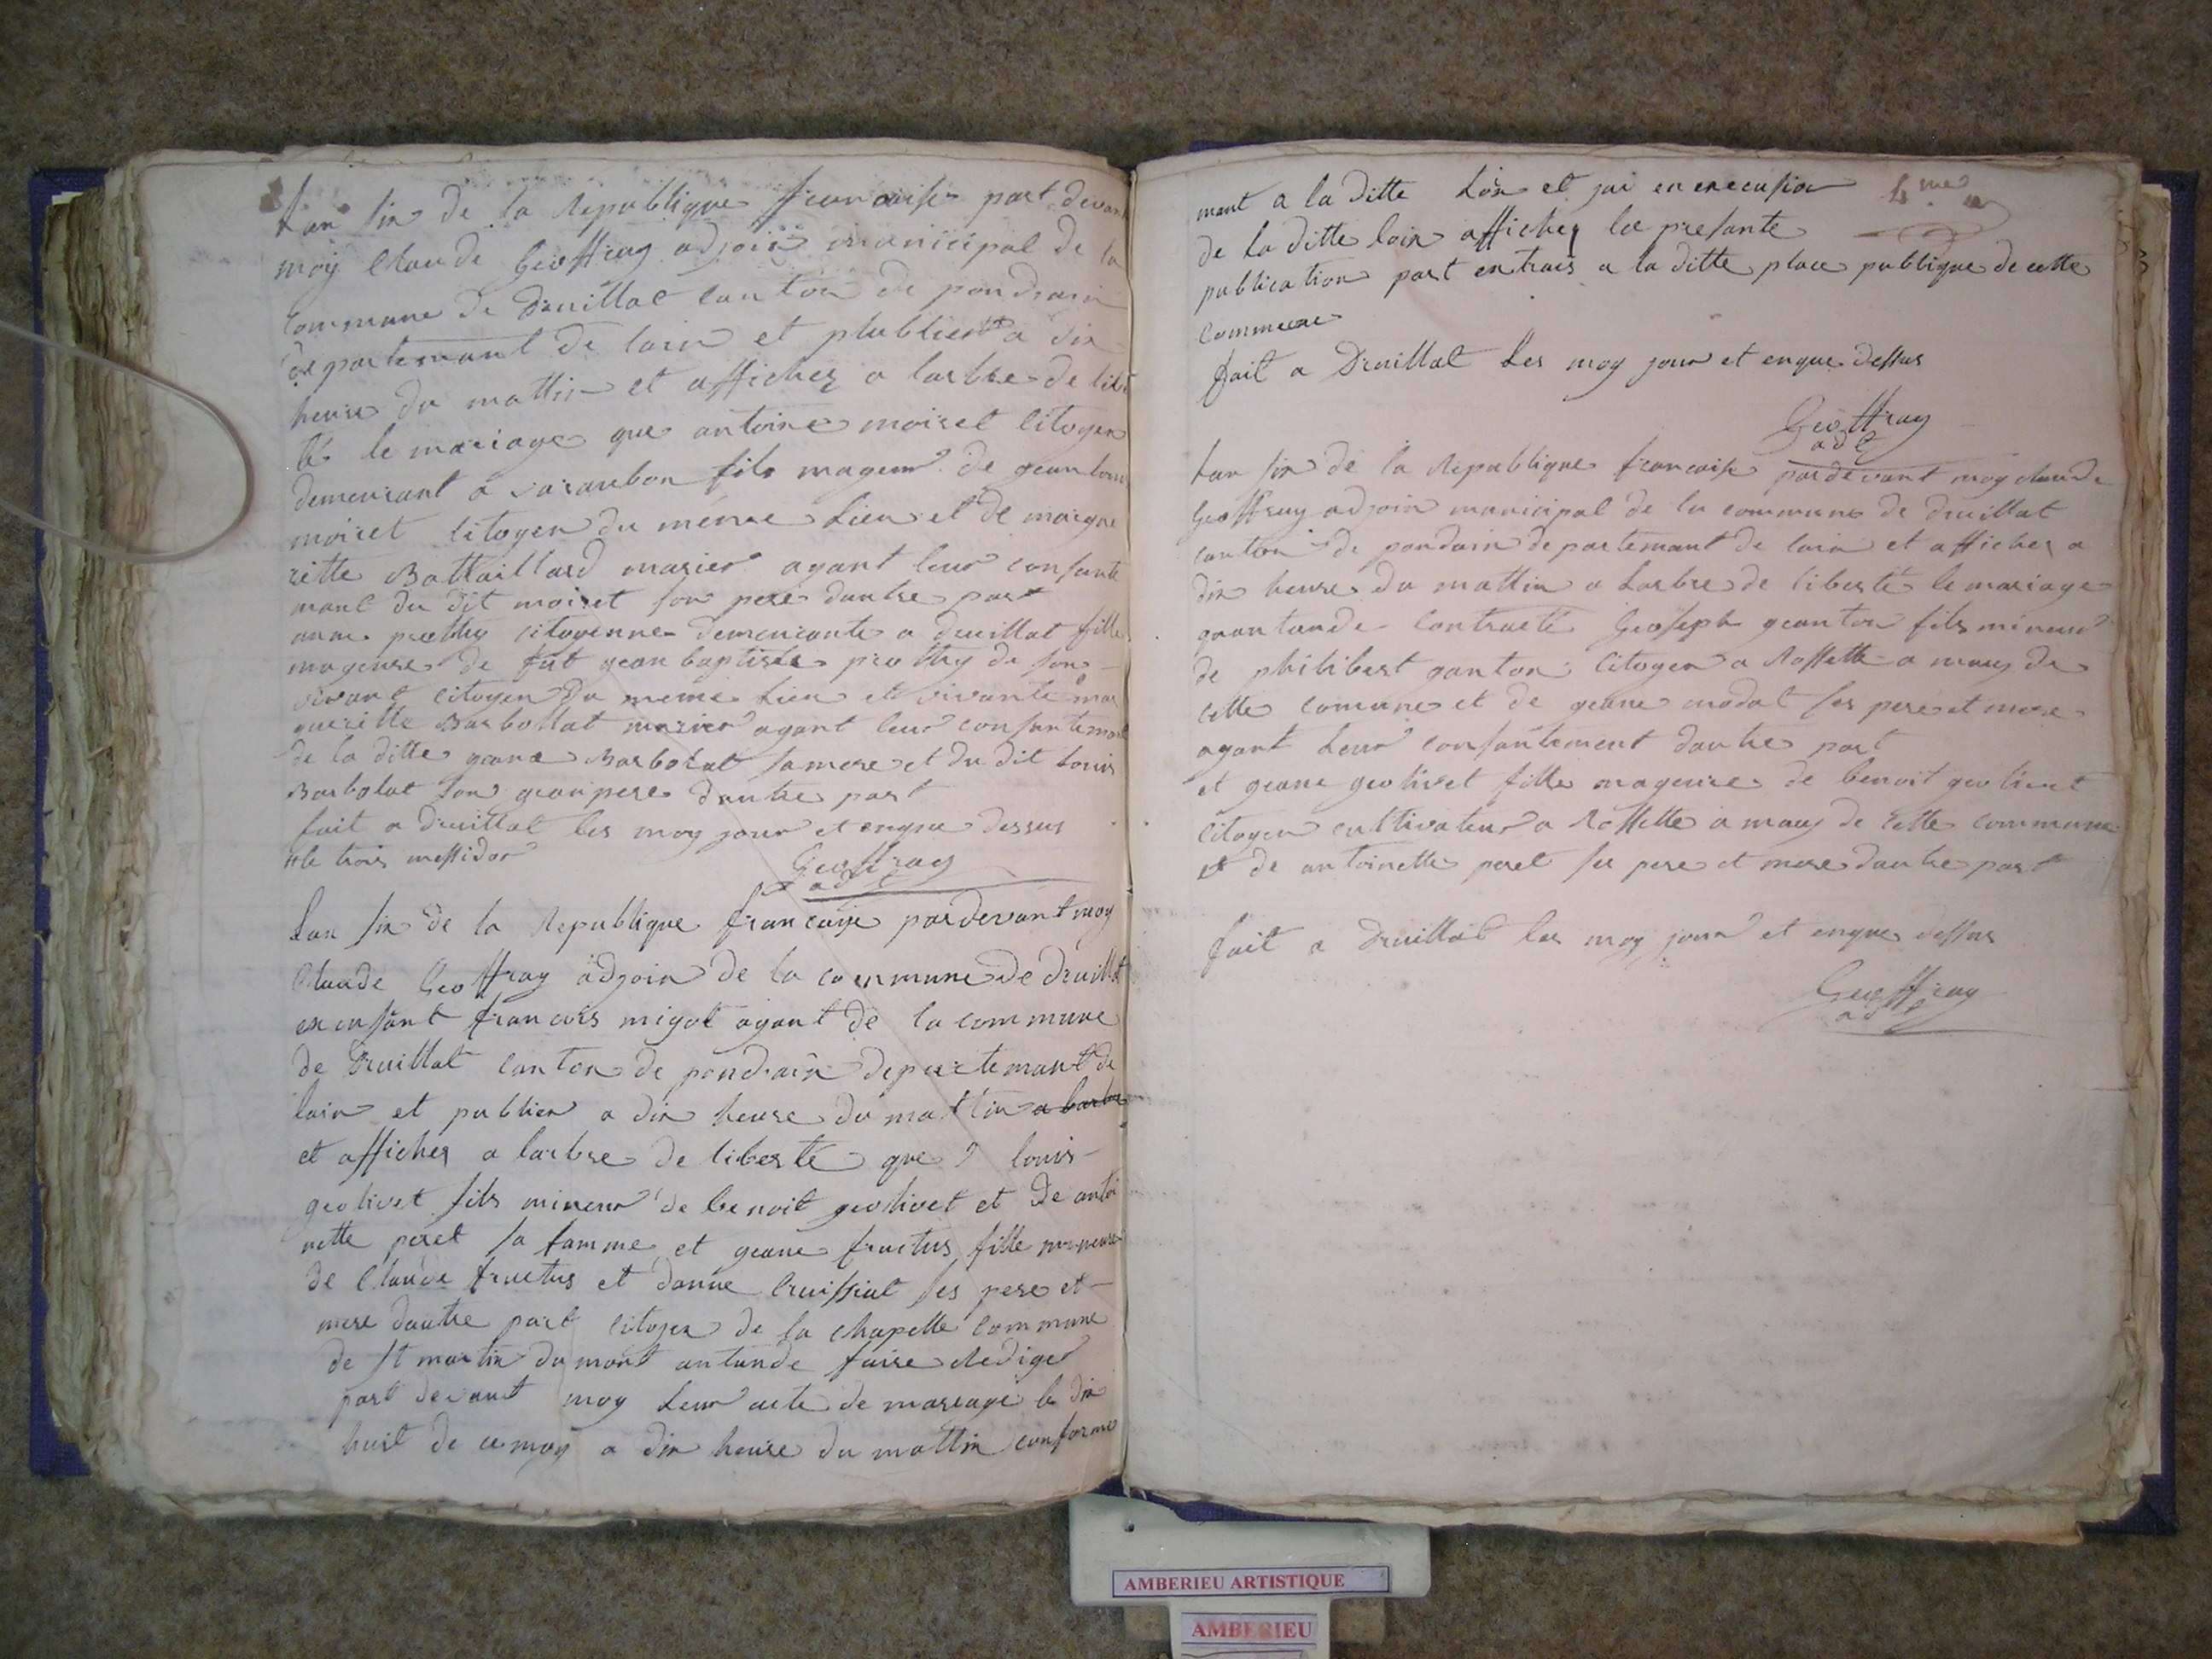 Lan six de la Republique francaise part devant
moy Claude Geoffray adjoin municipal de la
Commune de Druillat canton de pondrain
departemant de lain et plublier a dix
heure du mattin et affichez a larbre de liber
té le mariage que antoine moiret citoyen
demeurant a varanbon fils mageur de gean louis
moiret citoyen du meme lieu et de margue
ritte Battaillard marier ayant leur consante
mant du dit moiret son pere dautre part
anne prothy citoyenne demeurante a druillat fille
mageure de fut gean baptiste prothy de son
vivant citoyen du meme lieu et vivante mar
gueritte Barbollat marier ayant leur consantemant
de la ditte geane Barbolat sa mere et du dit louis
Barbolat son gran pere dautre part
fait a druillat les moy jour et enque dessus
le trois messidor
Geoffray
adt
Lan six de la Republique francaise pardevant moy
Claude Geoffray adjoin de la commune de druillat
en cusant francois migot agant de la commune
de Druillat canton de pondrain departemant de
lain et publier a dix heure du mattin a larbre
et affichez a larbre de liberté que louis
geolivet fils mineur de benoit geolivet et de antoi
nette peret sa famme et geane fructus fille mineure
de Claude fructus et danne Cruissiat ses pere et
mere dautre part citoyen de la chapelle commune
de st martin du mont antande faire Rediger
part devant moy leur acte de mariage le dix
huit de ce moy a dix heure du mattin conforme
mant a la ditte Loix et jai en execusion
4me
de la ditte loix affichez la presante
publication part entrais a la ditte place publique de cette
commune
fait a Druillat Les moy jour et enque dessus
Geoffray
adt
Lan six de la Republique francaise pardevant moy claude
Geoffray adjoin municipal de la commune de druillat
canton de pondrain departemant de lain et affichez a
dix heure du mattin a Larbre de liberté le mariage
quantande contracté Geoseph geanton fils mineur
de philibert ganton citoyen a Rossette a maus de
cette comune et de geane modat ses pere et mere
ayant Leur consantement dautre part
et geane geolivet fille mageure de benoit geolivet
citoyen cultivateur a Rossette a maus de cette commune
et de antoinette peret ses pere et mere dautre part
fait a Druillat les moy jour et enque dessus
Geoffray
adt
AMBERIEU ARTISTIQUE
AMBERIEU